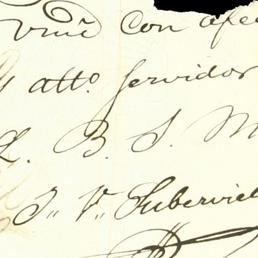 con afec
y atto. servidor
Q. B. S. M
J. V. Huberviel